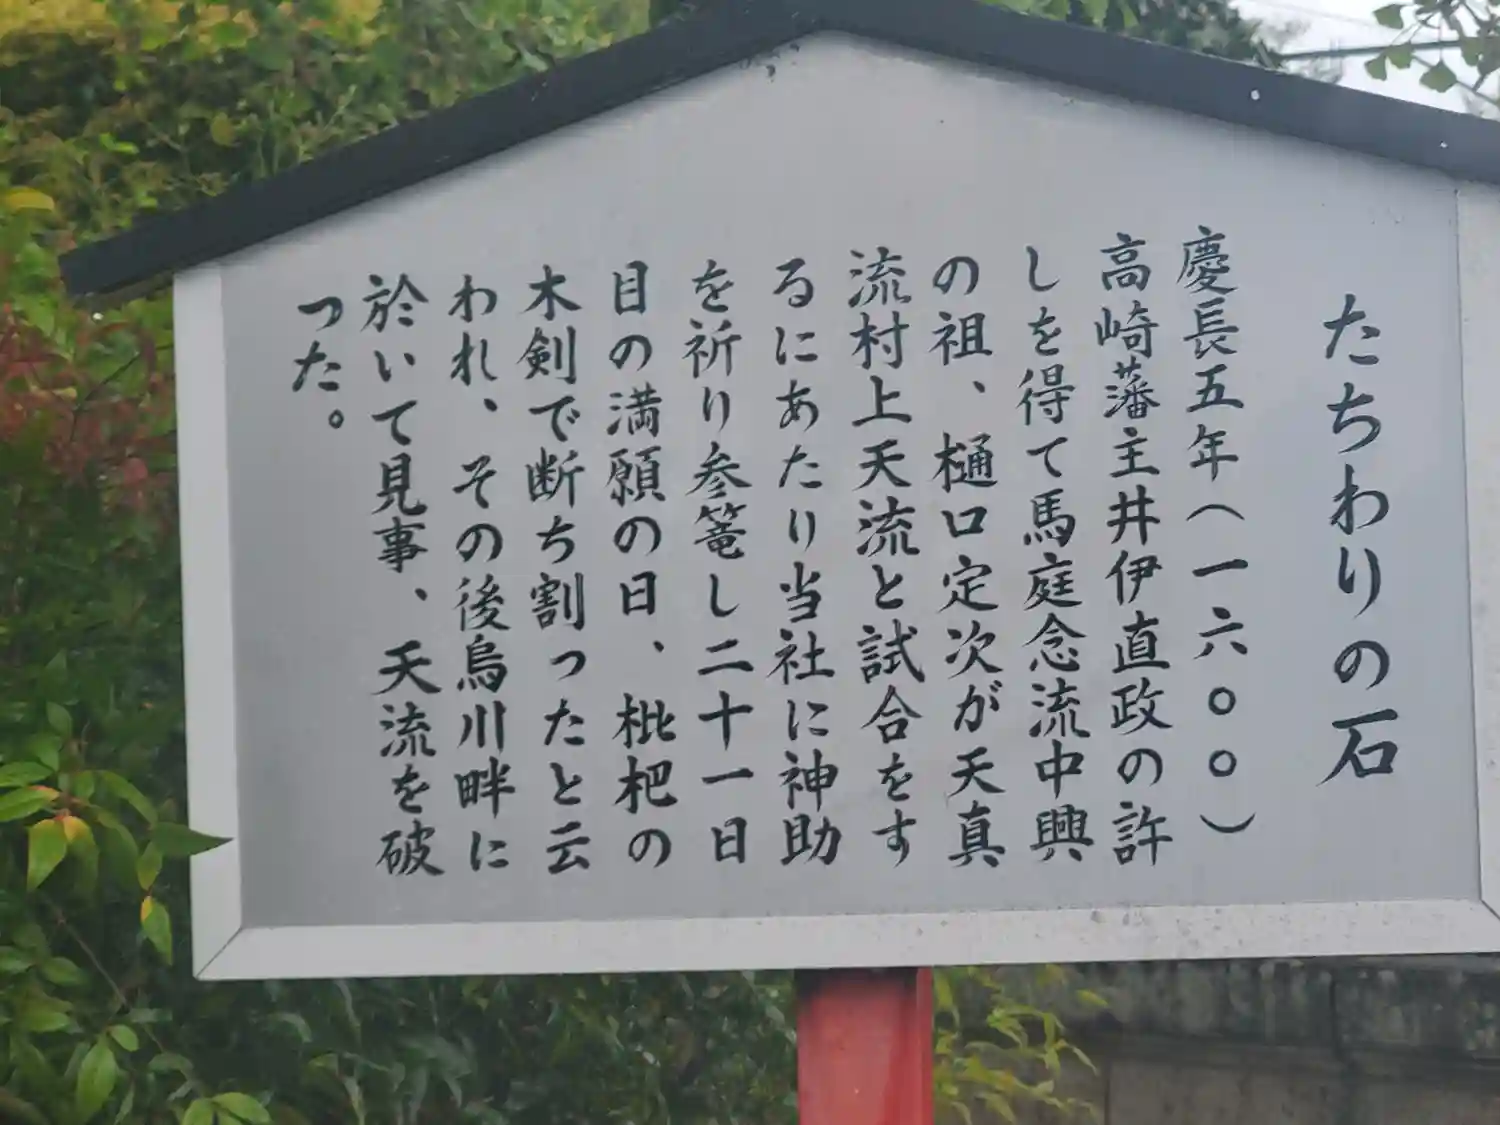 たちわりの石
慶長五年(一六〇〇)
高崎藩主井伊直政の許
しを得て馬庭念流中興
の祖、樋口定次が天真
流村上天流と試合をす
るにあたり当社に神助
を祈り参篭し二十一日
目の満願の日、枇杷の
木剣で断ち割ったと云
われ、その後烏川畔に
於いて見事、天流を破
った。